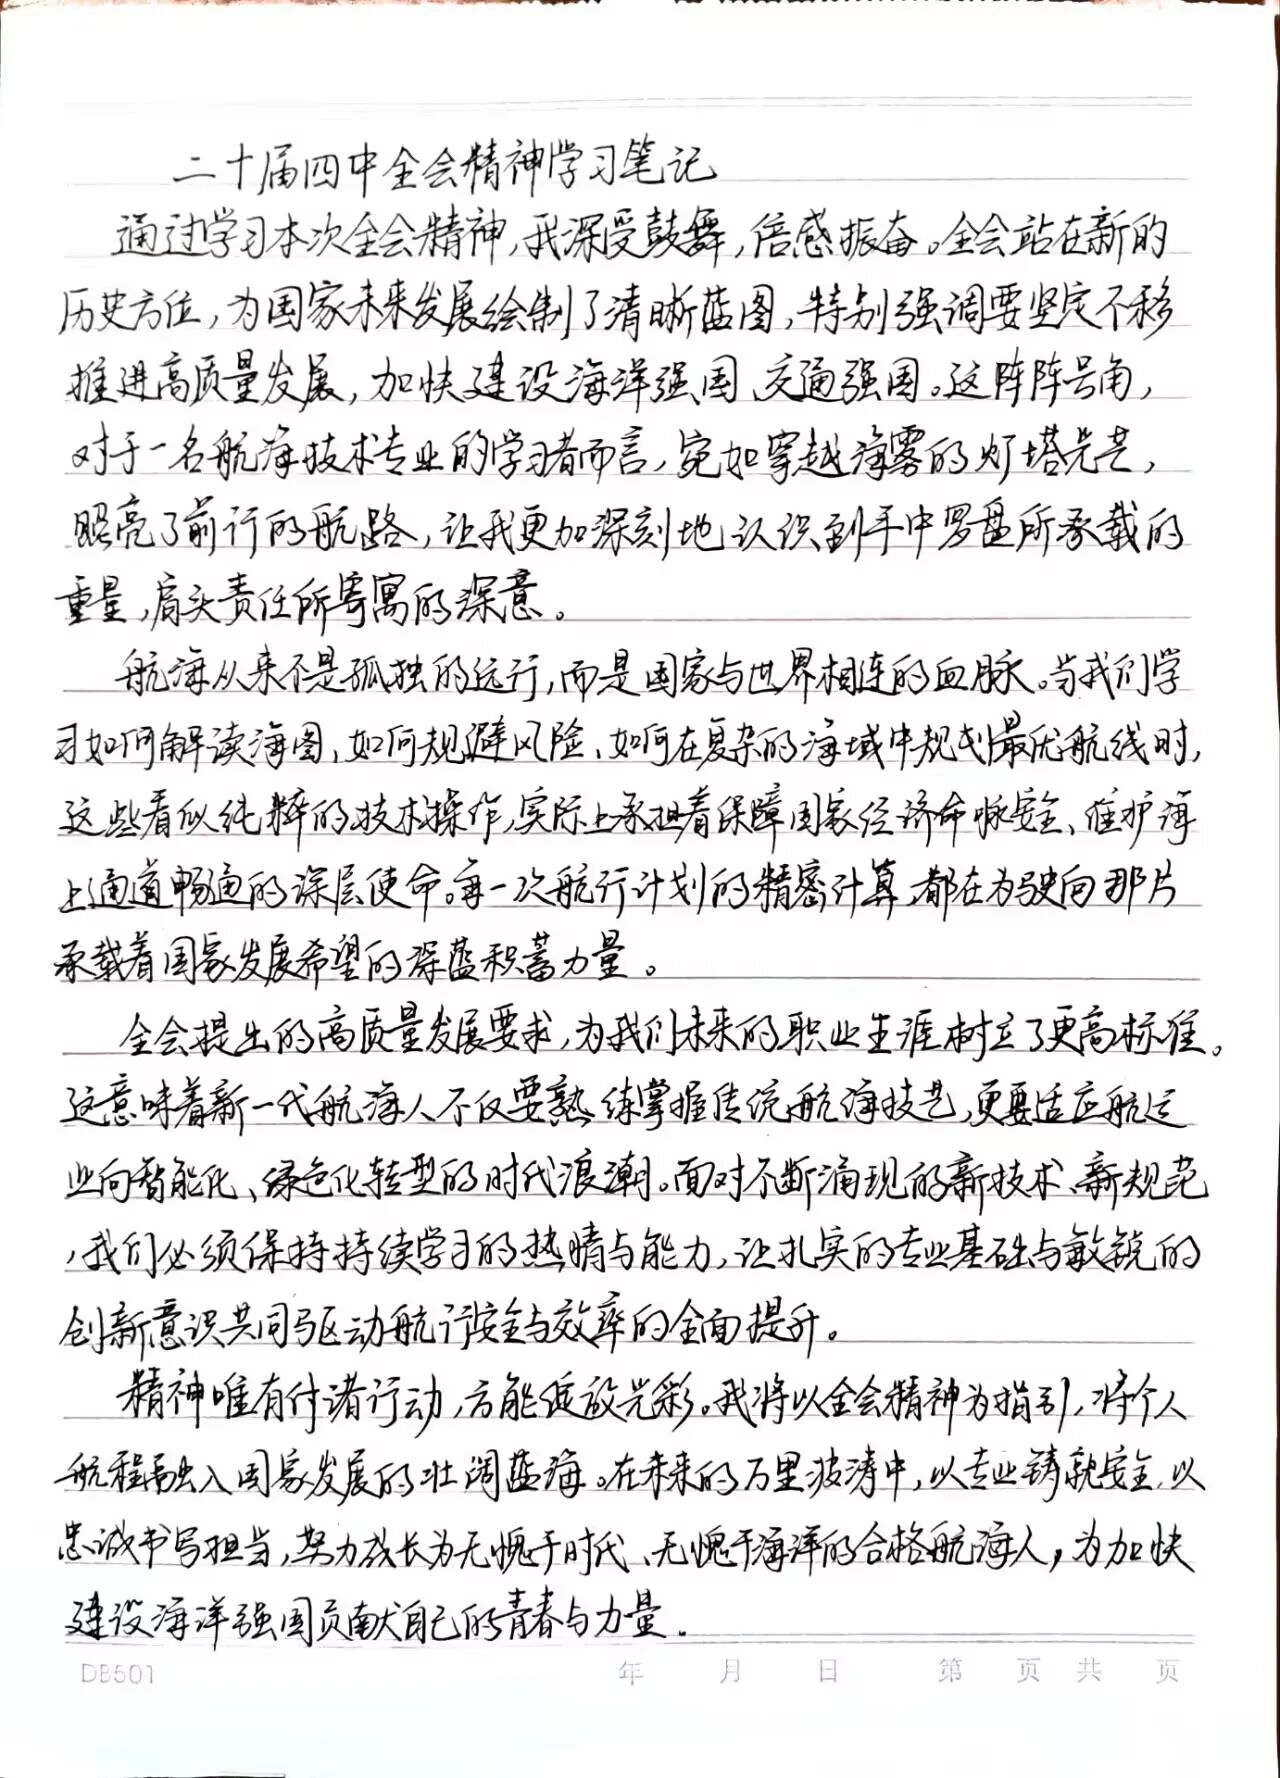 二十届四中全会精神学习笔记
通过学习本次全会精神,我深受鼓舞,倍感振奋。全会站在新的
历史方位,为国家未来发展绘制了清晰蓝图,特别强调要坚定不移
推进高质量发展,加快建设海洋强国、交通强国。这阵阵号角,
对于一名航海技术专业的学习者而言,宛如穿越海雾的灯塔光芒,
照亮了前行的航路,让我更加深刻地认识到手中罗盘所承载的
重量,肩头责任所寄寓的深意。
航海从来不是孤独的远行,而是国家与世界相连的血脉。当我们学
习如何解读海图、如何规避风险、如何在复杂的海域中规划最优航线时,
这些看似纯粹的技术操作,实际上承担着保障国家经济命脉安全、维护海
上通道畅通的深层使命。每一次航行计划的精密计算,都在为驶向那片
承载着国家发展希望的深蓝积蓄力量。
全会提出的高质量发展要求,为我们未来的职业生涯树立了更高标准。
这意味着新一代航海人不仅要熟练掌握传统航海技艺,更要适应航运
业向智能化、绿色化转型的时代浪潮。面对不断涌现的新技术、新规范
,我们必须保持持续学习的热情与能力,让扎实的专业基础与敏锐的
创新意识共同驱动航行安全与效率的全面提升。
精神唯有付诸行动,方能绽放光彩。我将以全会精神为指引,将个人
航程融入国家发展的壮阔蓝海。在未来的万里波涛中,以专业铸就安全,以
忠诚书写担当,努力成长为无愧于时代、无愧于海洋的合格航海人,为加快
建设海洋强国贡献自己的青春与力量.
DB501 年 月 日 第 页 共 页